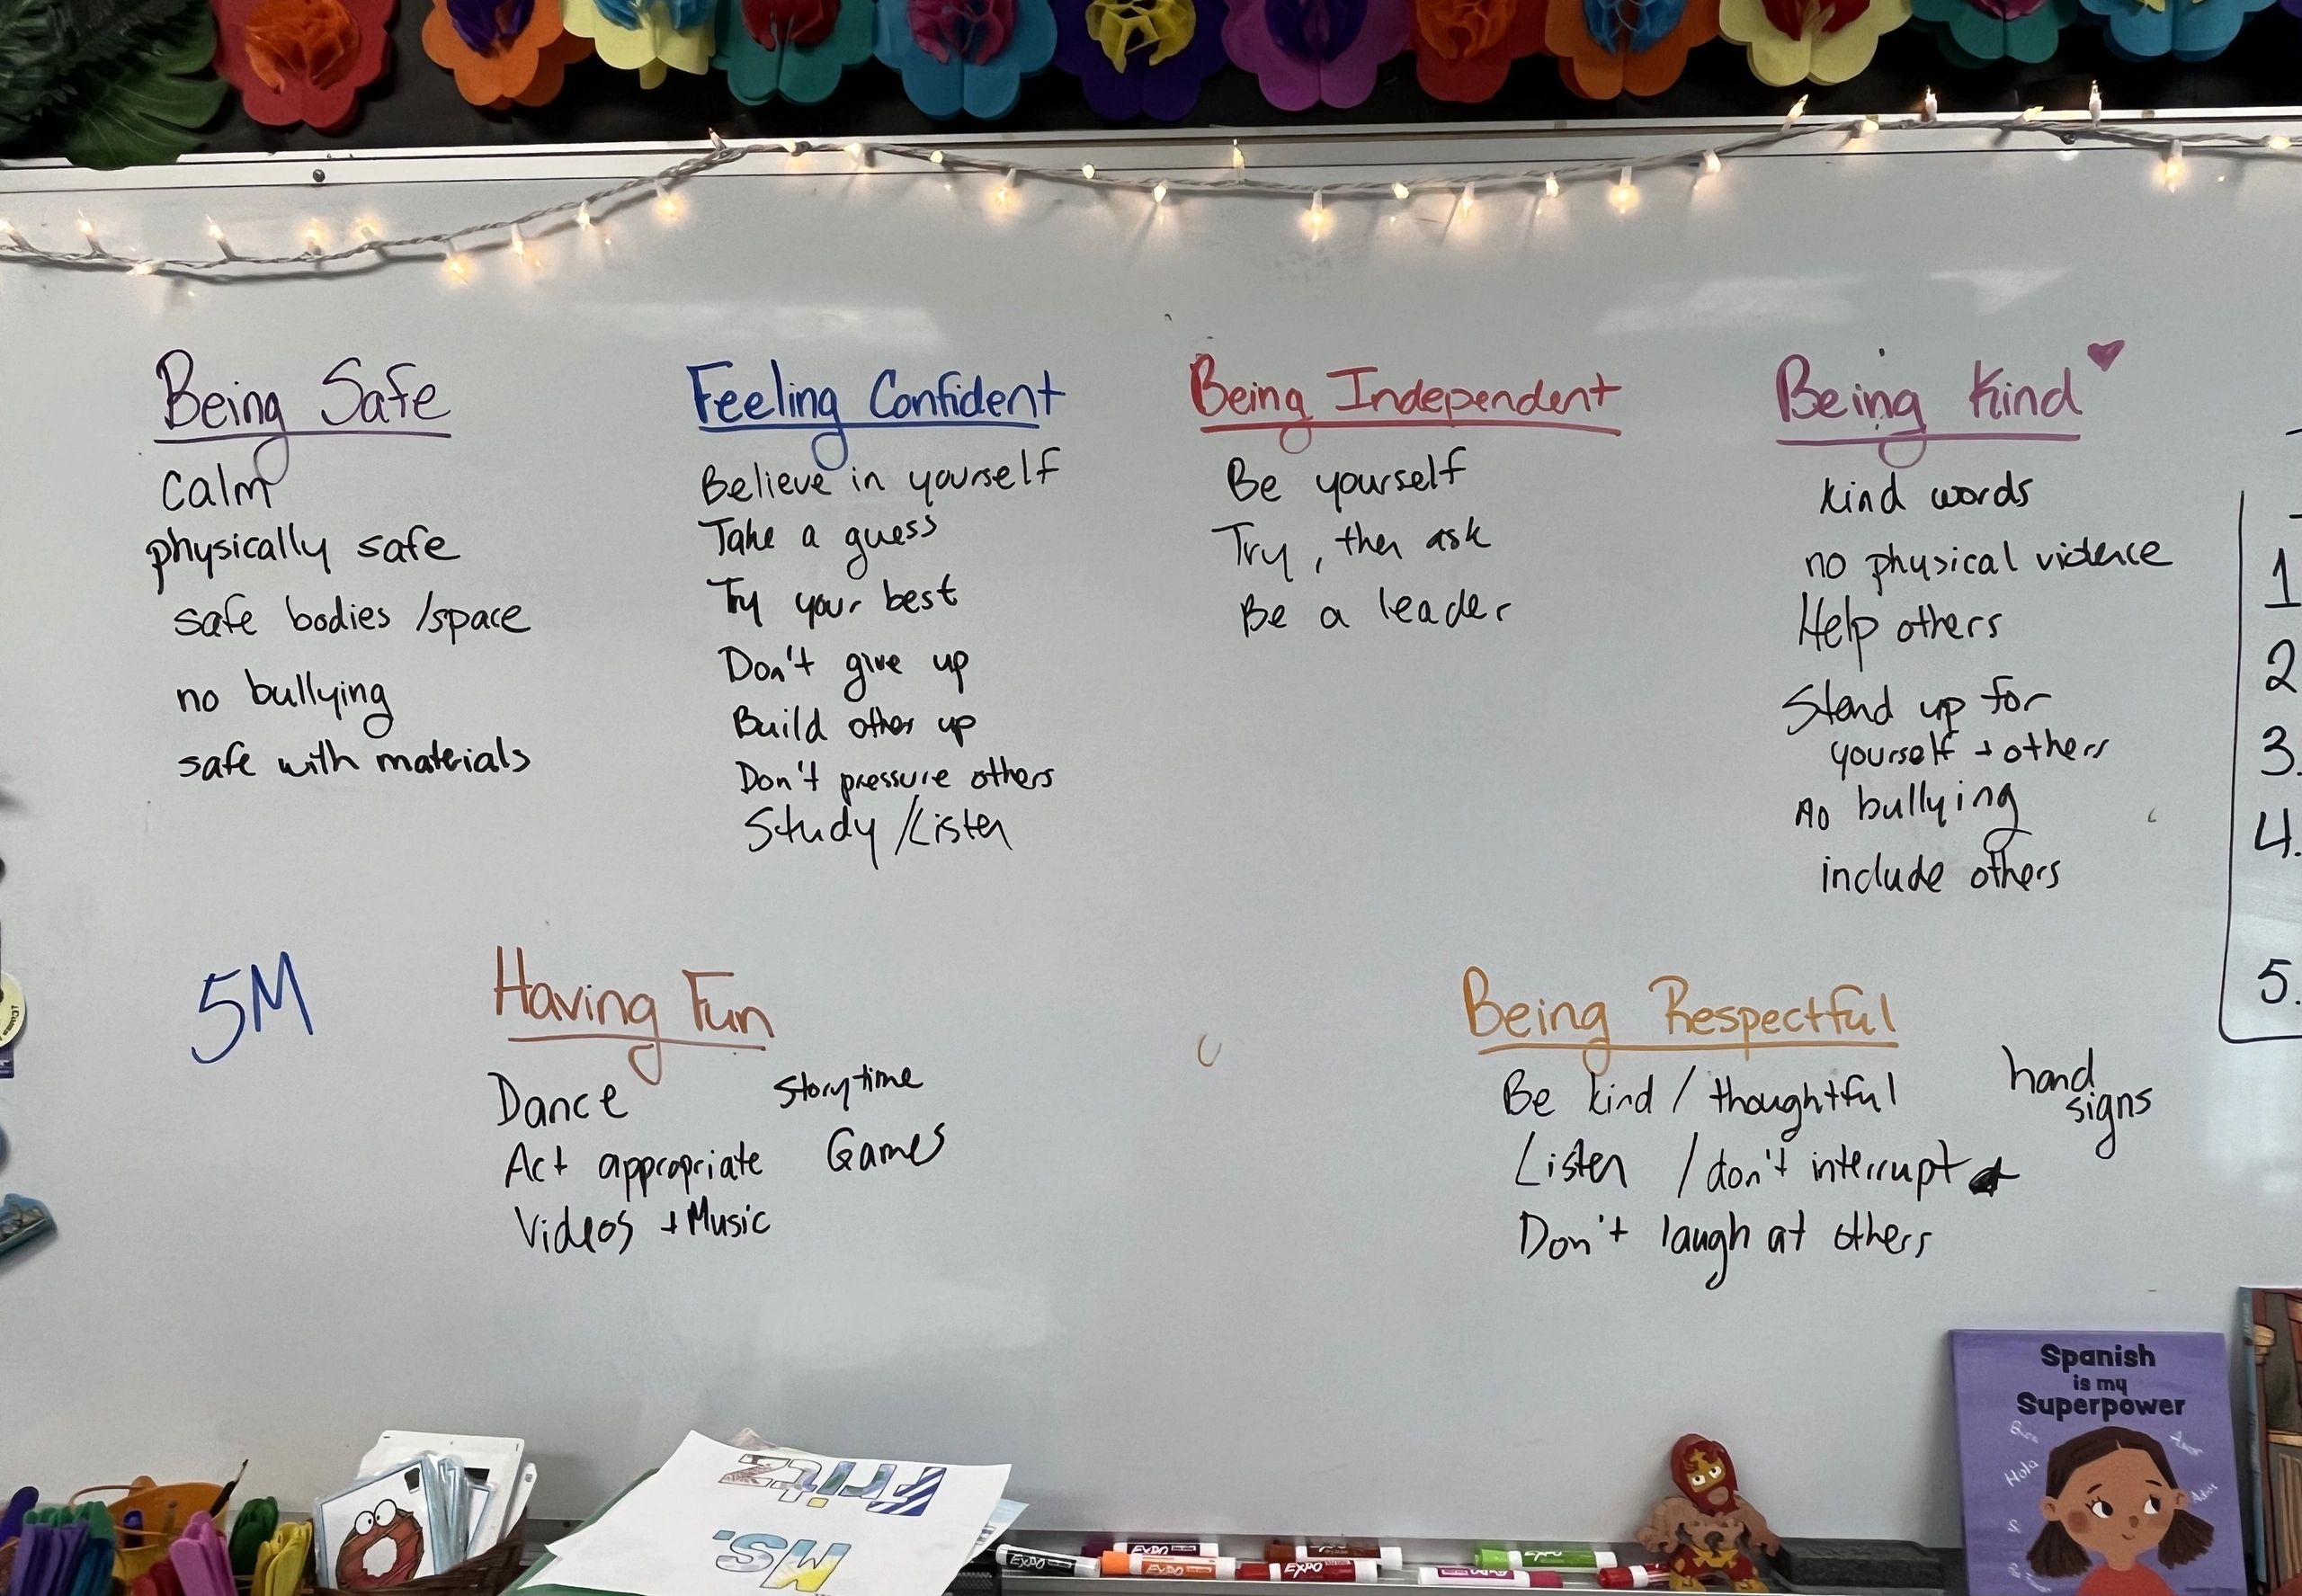 Being Safe
Calm
physically safe
safe bodies /space
no bullying
safe with materials
Feeling Confident
Believe in yourself
Take a guess
Try your best
Don't give up
Build other up
Don't pressure others
Study /Listen
Being Independent
Be yourself
Try, then ask
Be a leader
Being Kind
kind words
no physical violence
Help others
Stand up for
yourself + others
no bullying
include others
1
2
3.
4.
5.
5M
Having Fun
Dance
Storytime
Act appropriate
Games
Videos + Music
Being Respectful
Be kind / thoughtful
hand
signs
Listen / don't interrupt
Don't laugh at others
Spanish
is my
Superpower
Hola
Amor
Ms.
Fritz
EXPO
EXPO
EXPO
EXPO
EXPO